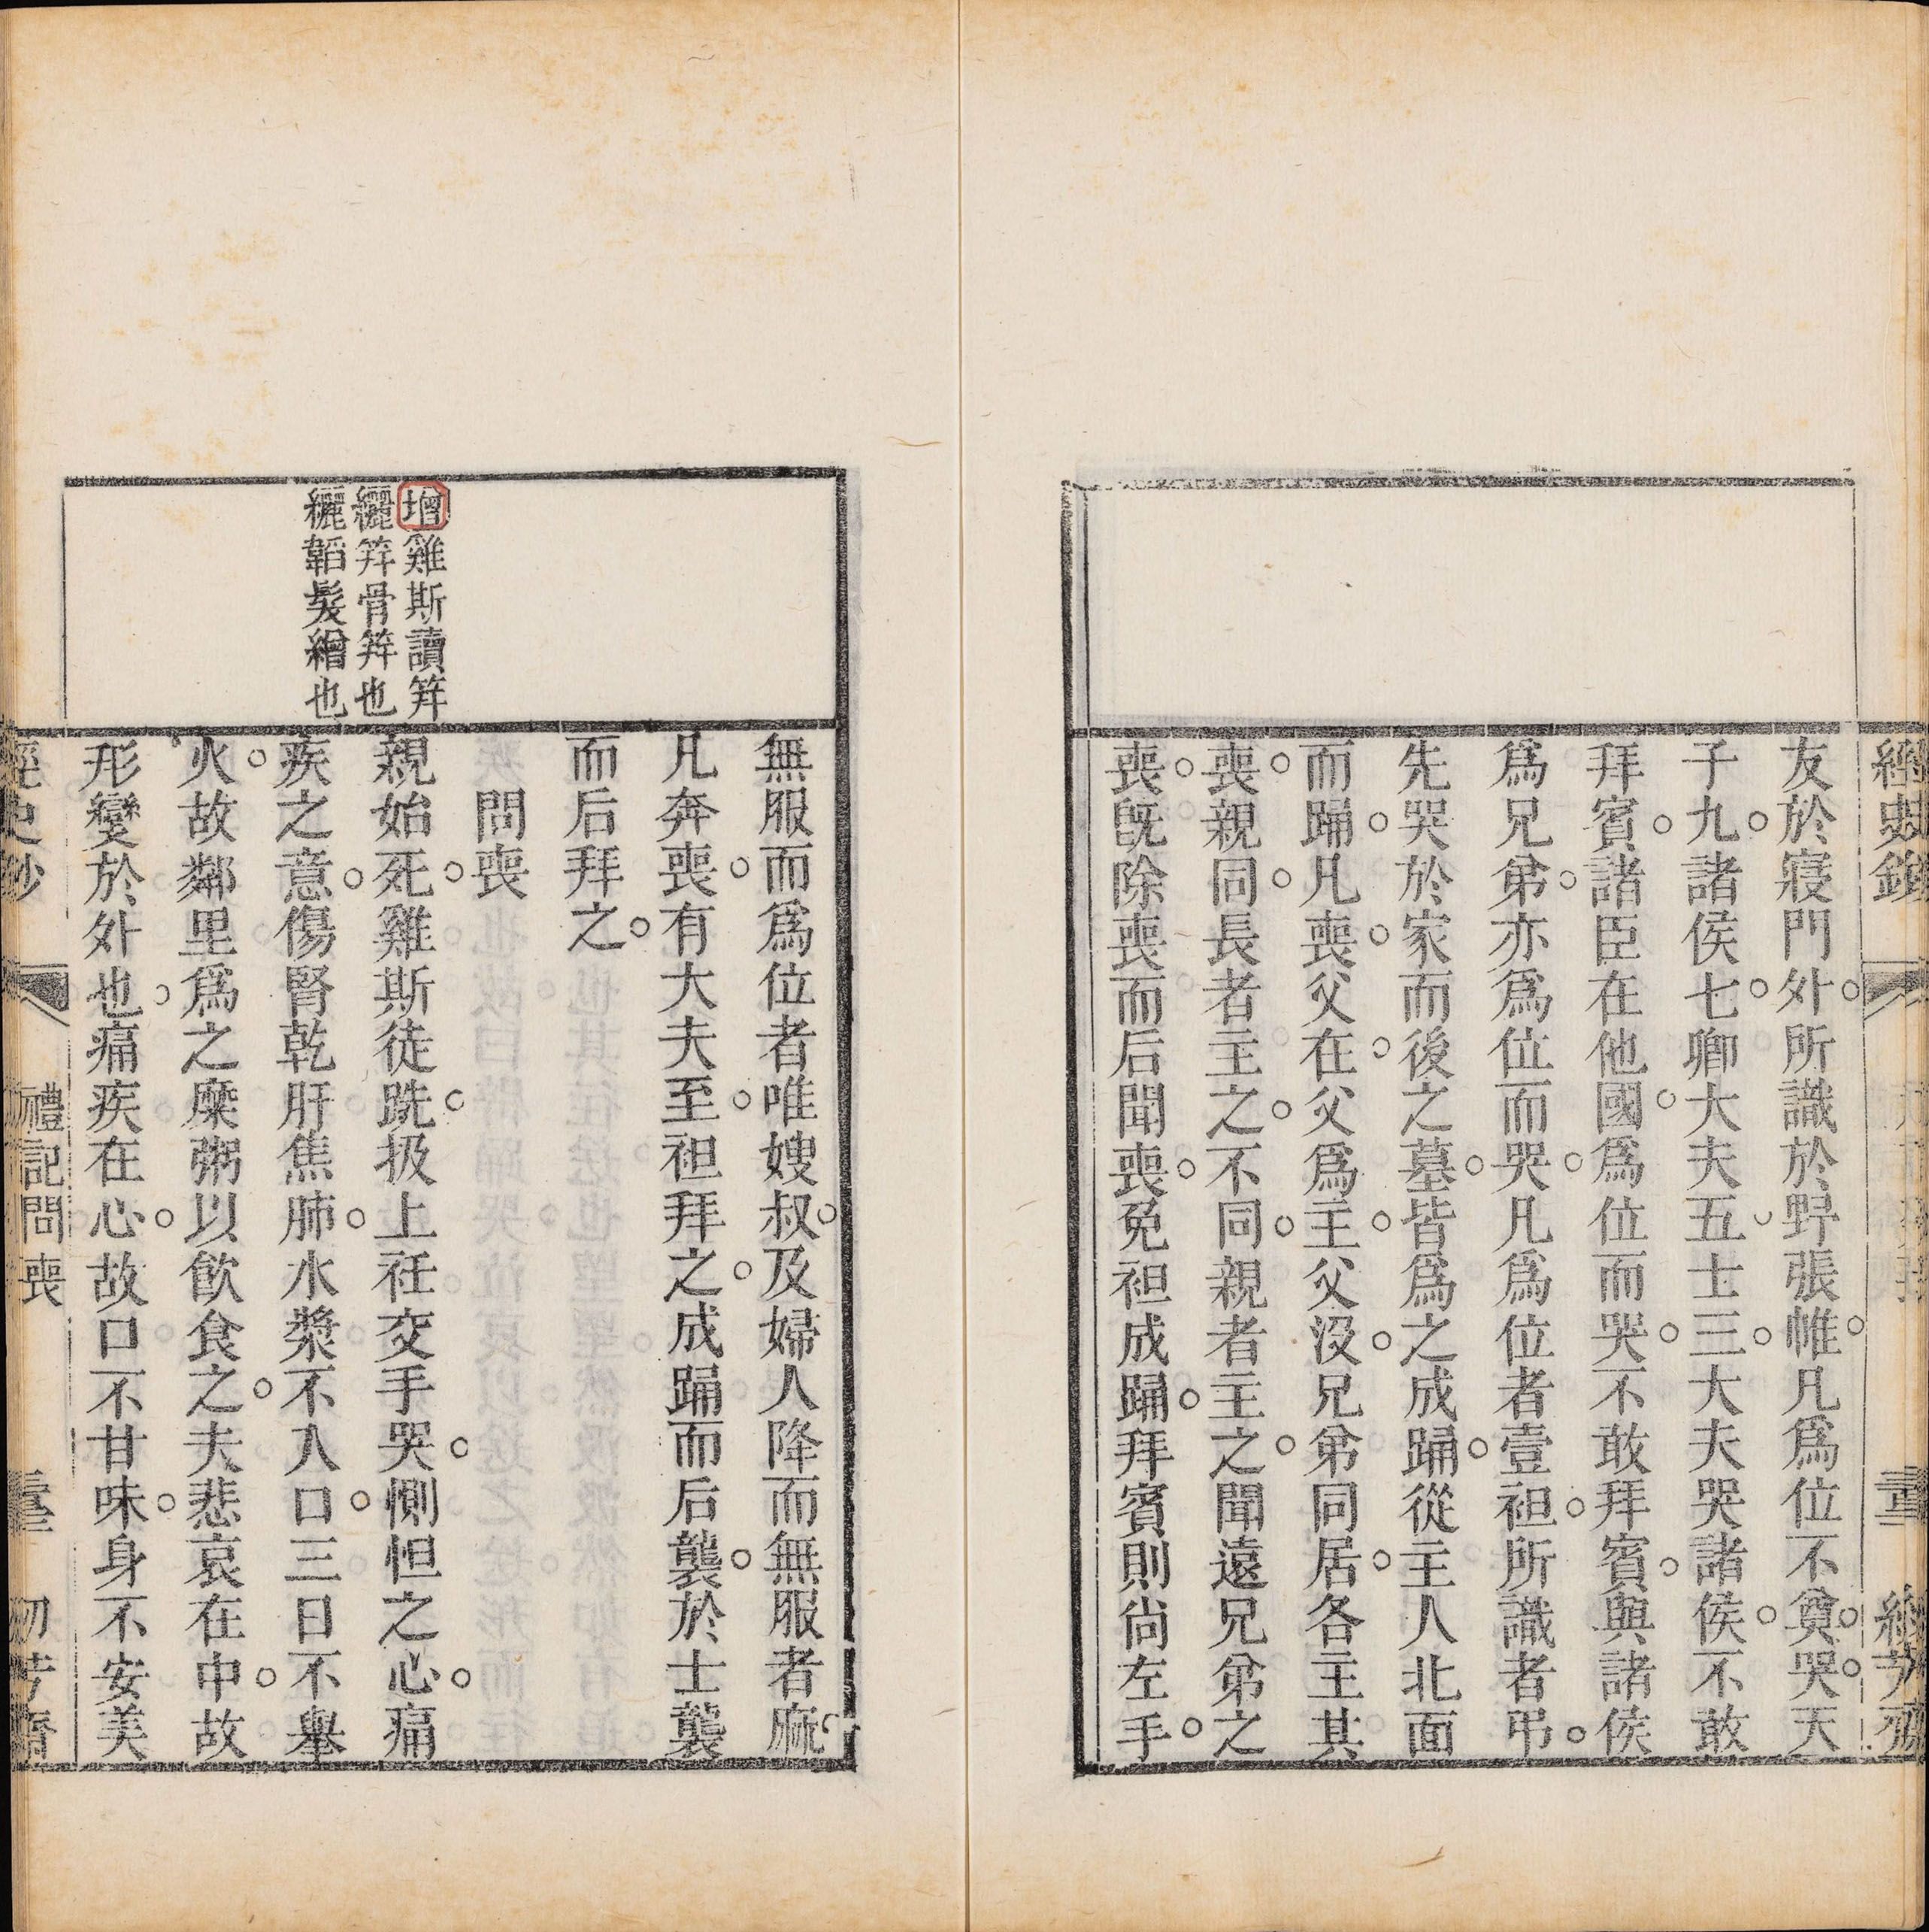 友於寢門外。所識於野張帷。凡爲位不奠。哭天
子九。諸侯七。卿大夫五。士三。大夫哭諸侯。不敢
拜賓。諸臣在他國。爲位而哭。不敢拜賓。與諸侯
爲兄弟。亦爲位而哭。凡爲位者壹袒。所識者弔。
先哭於家而後之墓。皆爲之成踊。從主人北面
而踊。凡喪。父在。父爲主。父沒。兄弟同居。各主其
喪。親同。長者主之。不同。親者主之。聞遠兄弟之
喪。旣除喪而后聞喪。免袒成踊。拜賓則尚左手。
無服而爲位者唯嫂叔。及婦人降而無服者麻。
凡奔喪。有大夫至。袒拜之。成踊而后襲。於士襲
而后拜之。
問喪
增雞斯讀笄
纚笄骨笄也
纚韜髮繒也
親始死。雞斯徒跣。扱上衽交手哭。惻怛之心。痛
疾之意。傷腎乾肝焦肺。水漿不入口。三日不舉
火。故鄰里爲之糜粥以飮食之。夫悲哀在中。故
形變於外也。痛疾在心。故口不甘味。身不安美
經史鈔
禮記問喪